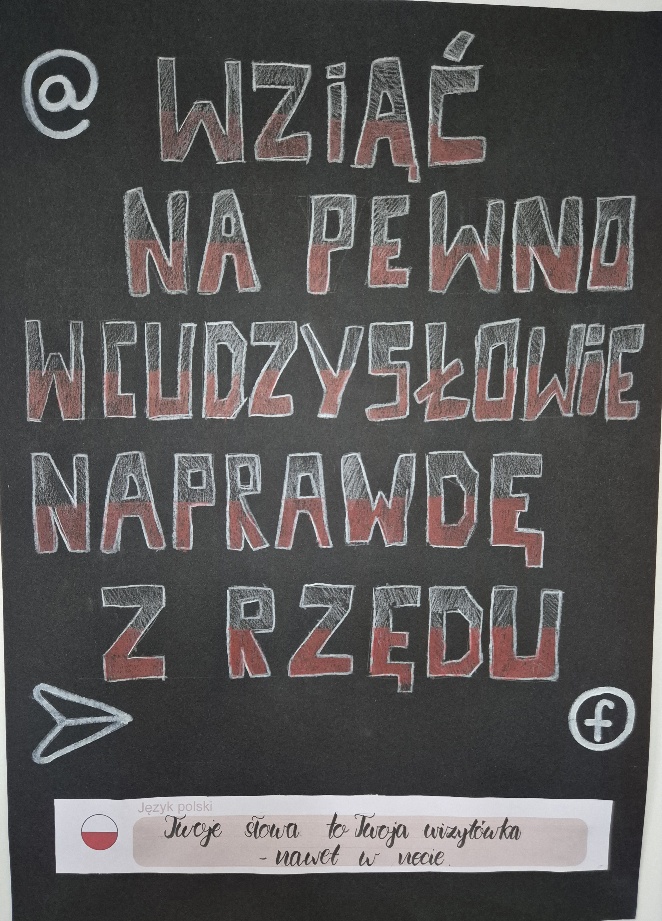 @
WZIĄĆ
NA PEWNO
W CUDZYSŁOWIE
NAPRAWDĘ
Z RZĘDU
f
Język polski
Twoje słowa to Twoja wizytówka
- nawet w necie.